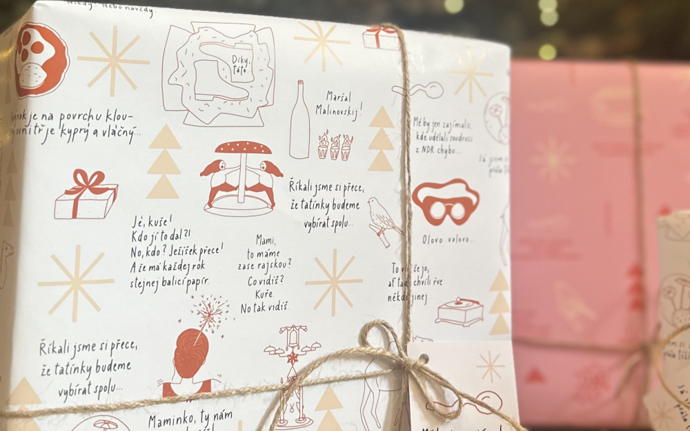 Nebo navždy
Díky,
táto
je na povrchu klou-
je kyprý a vláčný...
Maršál
Malinovskij!
kde udělali soudruzi
z NDR chybu...
Říkali jsme si přece,
že tatínky budeme
vybírat spolu...
Jé, kuše!
Kdo jí to dal?!
No, kdo? Ježíšek přece!
A že má každej rok
stejnej balicí papír.
Mami,
to máme
zase rajskou?
Co vidíš?
Kuře.
No tak vidíš.
Olovo volovo...
Říkali jsme si přece,
že tatínky budeme
vybírat spolu...
Maminko, ty nám